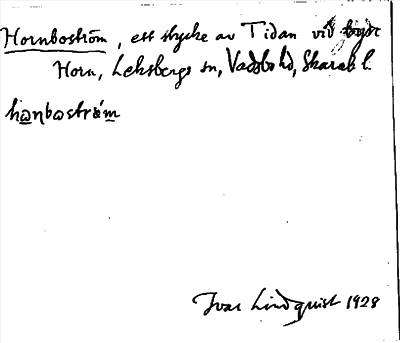 Hornboström, ett stycke av Tidan vid
Horn, Leksbergs sn, Vadsbo hd, Skarab l.
hɷnbɷström
Ivar Lindquist 1928